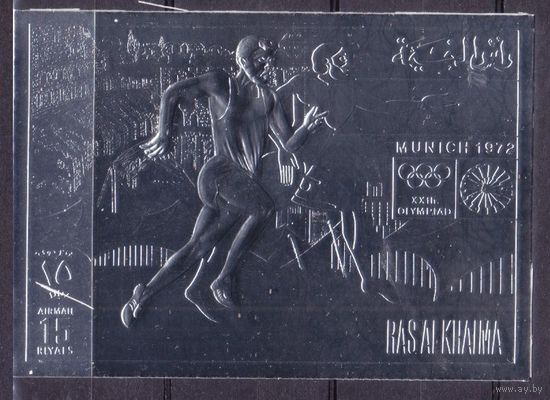 رأس الخيمة
MUNICH 1972
XXth.
OLYMPIAD
١٥
AIRMAIL
15
RIYALS
RAS AL KHAIMA
www.ay.by